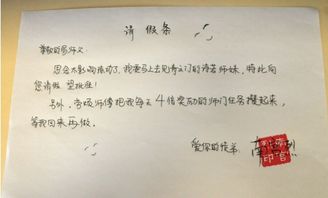 请假条
尊敬的恩师父：
因合不影响振动了，我要马上去见青云门的诗若师妹，特此向
您请假 望批准！
另外，劳烦师傅把我每天4倍奖励的师门任务攒起来，
等我回来再做。
爱你的徒弟：